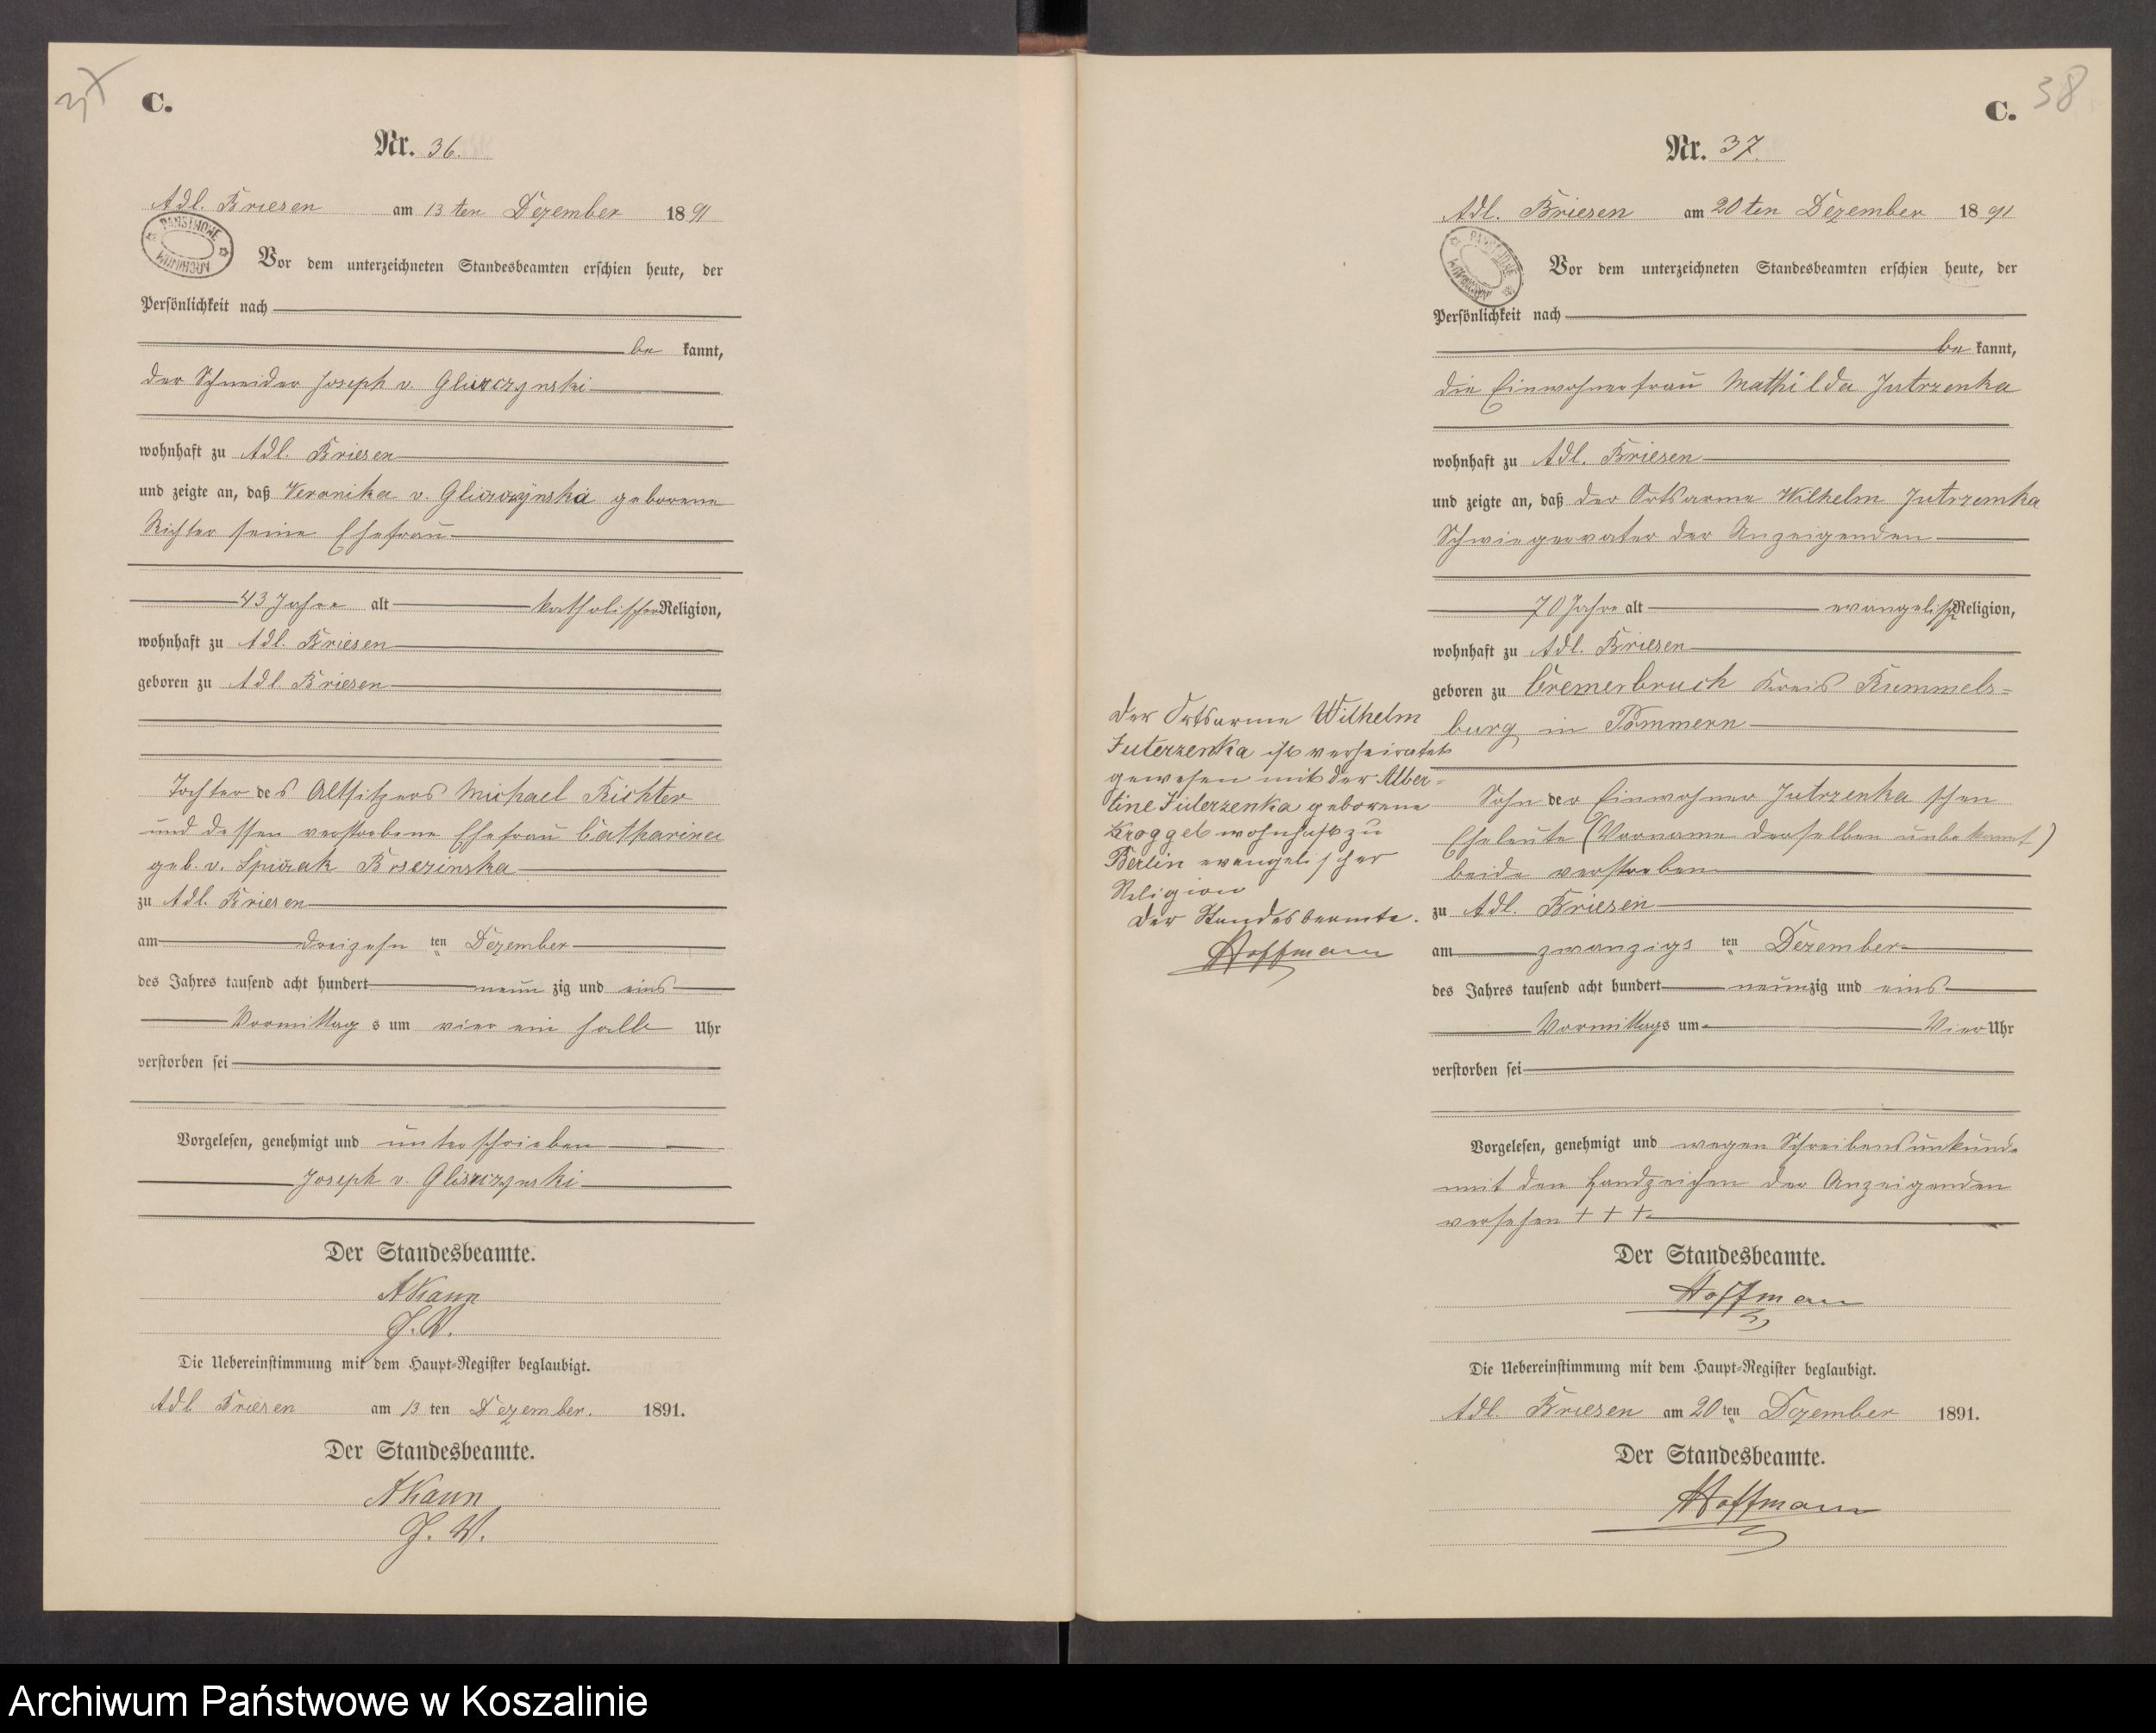 37
C.
Nr. 36.
Adl. Briesen am 13 ten Dezember 1891
PAŃSTWOWE ARCHIWUM
Vor dem unterzeichneten Standesbeamten erschien heute, der
Persönlichkeit nach
be kannt,
der Schneider Joseph v. Gliszczynski
wohnhaft zu Adl. Briesen
und zeigte an, daß Veronika v. Gliszczynska geborene
Richter seine Ehefrau
43 Jahre alt katholischer Religion,
wohnhaft zu Adl. Briesen
geboren zu Adl. Briesen
Tochter des Altsitzers Michael Richter
und dessen verstorbene Ehefrau Catharina
geb. v.
zu Adl. Briesen
am dreizehn ten Dezember
des Jahres tausend acht hundert neun zig und eins
Vormittag s um vier ein halb Uhr
verstorben sei
Vorgelesen, genehmigt und unterschrieben
Joseph v. Gliszczynski
Der Standesbeamte.
J. V.
Die Uebereinstimmung mit dem Haupt-Register beglaubigt.
Adl. Briesen am 13 ten Dezember. 1891.
Der Standesbeamte.
J. V.
C. 38
Nr. 37.
Adl. Briesen am 20 ten Dezember 1891
PAŃSTWOWE ARCHIWUM
Vor dem unterzeichneten Standesbeamten erschien heute, der
Persönlichkeit nach
be kannt,
die Einwohnerfrau Mathilda Jutrzenka
wohnhaft zu Adl. Briesen
und zeigte an, daß der Ortsarme Wilhelm Jutrzemka
Schwiegervater der Anzeigenden
70 Jahre alt evangelisch Religion,
wohnhaft zu Adl. Briesen
geboren zu Cremerbruch Kreis Rummels=
burg in Pommern
Sohn der Einwohner Jutrzenka schen
Eheleute (Vorname derselben unbekannt)
beide verstorben
zu Adl. Briesen
am zwanzigs ten Dezember
des Jahres tausend acht hundert neunzig und eins
Vormittags um Vier Uhr
verstorben sei
Vorgelesen, genehmigt und wegen Schreibensunkunde
mit den Handzeichen der Anzeigenden
versehen + + +
Der Standesbeamte.
Hoffmann
Die Uebereinstimmung mit dem Haupt-Register beglaubigt.
Adl. Briesen am 20 ten Dezember 1891.
Der Standesbeamte.
Hoffmann
Der Ortsarme Wilhelm
Juterzenka ist verheiratet
gewesen mit der Alber=
tine Juterzenka geborene
Kroggel wohnhaft zu
Berlin evangelischer
Religion
Der Standesbeamte.
Hoffmann
Archiwum Państwowe w Koszalinie